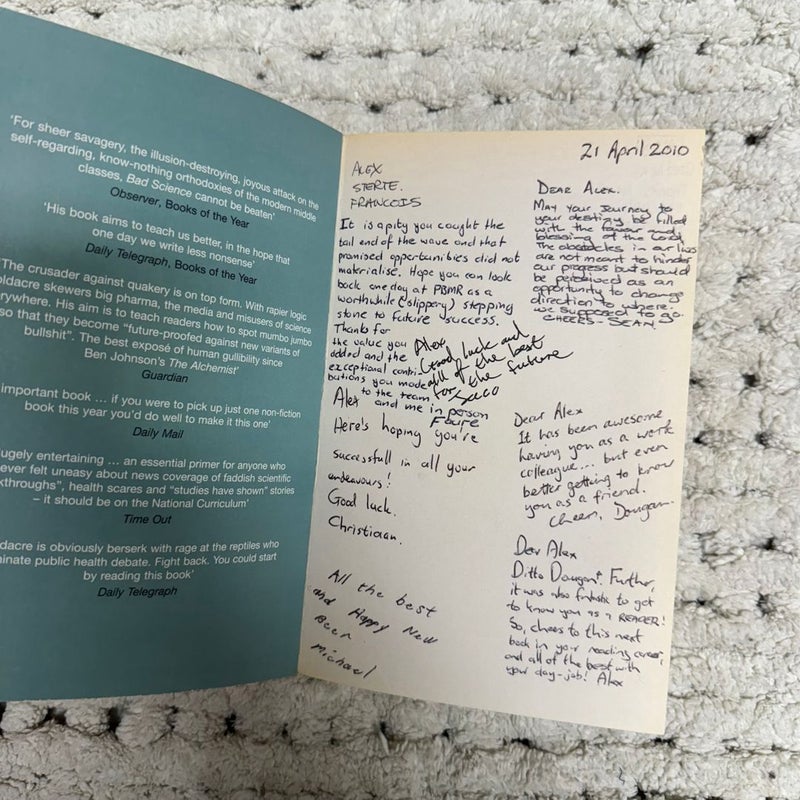 'For sheer savagery, the illusion-destroying, joyous attack on the
self-regarding, know-nothing orthodoxies of the modern middle
classes, Bad Science cannot be beaten'
Observer, Books of the Year
'His book aims to teach us better, in the hope that
one day we write less nonsense'
Daily Telegraph, Books of the Year
The crusader against quackery is on top form. With rapier logic
oldacre skewers big pharma, the media and misusers of science
erywhere. His aim is to teach readers how to spot mumbo jumbo
so that they become "future-proofed against new variants of
bullshit". The best exposé of human gullibility since
Ben Johnson's The Alchemist'
Guardian
important book ... if you were to pick up just one non-fiction
book this year you'd do well to make it this one'
Daily Mail
ugely entertaining ... an essential primer for anyone who
ever felt uneasy about news coverage of faddish scientific
kthroughs", health scares and "studies have shown" stories
– it should be on the National Curriculum'
Time Out
dacre is obviously berserk with rage at the reptiles who
inate public health debate. Fight back. You could start
by reading this book'
Daily Telegraph
21 April 2010
ALEX
STERTE.
FRANCOIS
It is a pity you caught the
tail end of the wave and that
promised opportunities did not
materialise. Hope you can look
back one day at PBMR as a
worthwhile (slippery) stepping
stone to future success.
Thanks for
the value you
added and the
exceptional contri
butions you made
to the team
and me in person
Faure
Alex
Good luck and
all of the best
for the future
Jaco
Alex
Here's hoping you're
successfull in all your
endeavours!
Good luck.
Christiaan.
All the best
and Happy New
Beer.
Michael
DEAR ALEX.
MAY YOUR JOURNEY TO
YOUR DESTINY BE FILLED
WITH THE FAVOUR AND
BLESSING OF THE LORD
THE OBSTACLES IN OUR LIVES
ARE NOT MEANT TO HINDER
OUR PROGRESS BUT SHOULD
BE PERCEIVED AS AN
OPPORTUNITY TO CHANGE
DIRECTION TO WHERE
WE SUPPOSED TO GO.
CHEERS - SEAN
Dear Alex
It has been awesome
having you as a work
colleague... but even
better getting to know
you as a friend.
Cheers, Dougan.
Dear Alex
Ditto Dougan. Further,
it was also fantastic to get
to know you as a READER!
So, cheers to this next
book in your reading career,
and all of the best with
your day-job! Alex